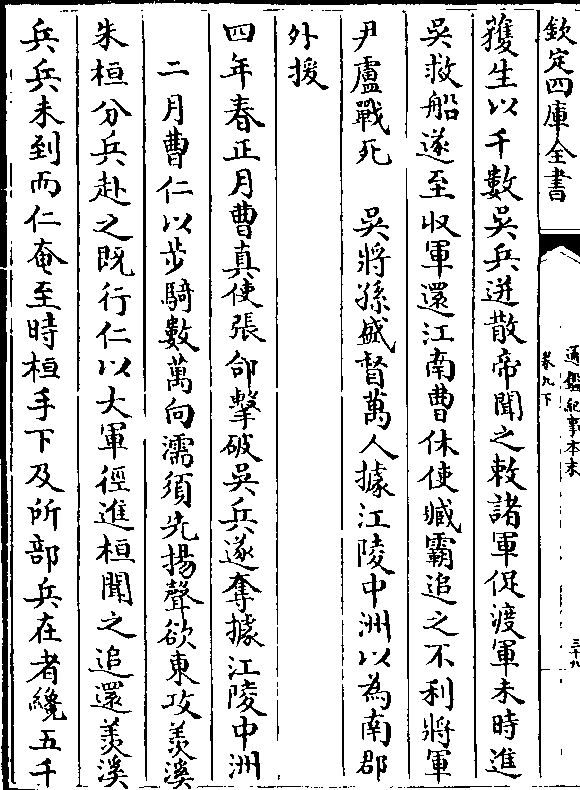 欽定四庫全書
通鑑紀事本末
卷九下
三十九
獲生以千數吳兵迸散帝聞之敕諸軍促渡軍未時進
吳救船遂至收軍還江南曹休使臧霸追之不利將軍
尹盧戰死　吳將孫盛督萬人據江陵中洲以為南郡
外援
四年春正月曹真使張郃擊破吳兵遂奪據江陵中洲
二月曹仁以步騎數萬向濡須先揚聲欲東攻羨溪
朱桓分兵赴之既行仁以大軍徑進桓聞之追還羨溪
兵兵未到而仁奄至時桓手下及所部兵在者纔五千